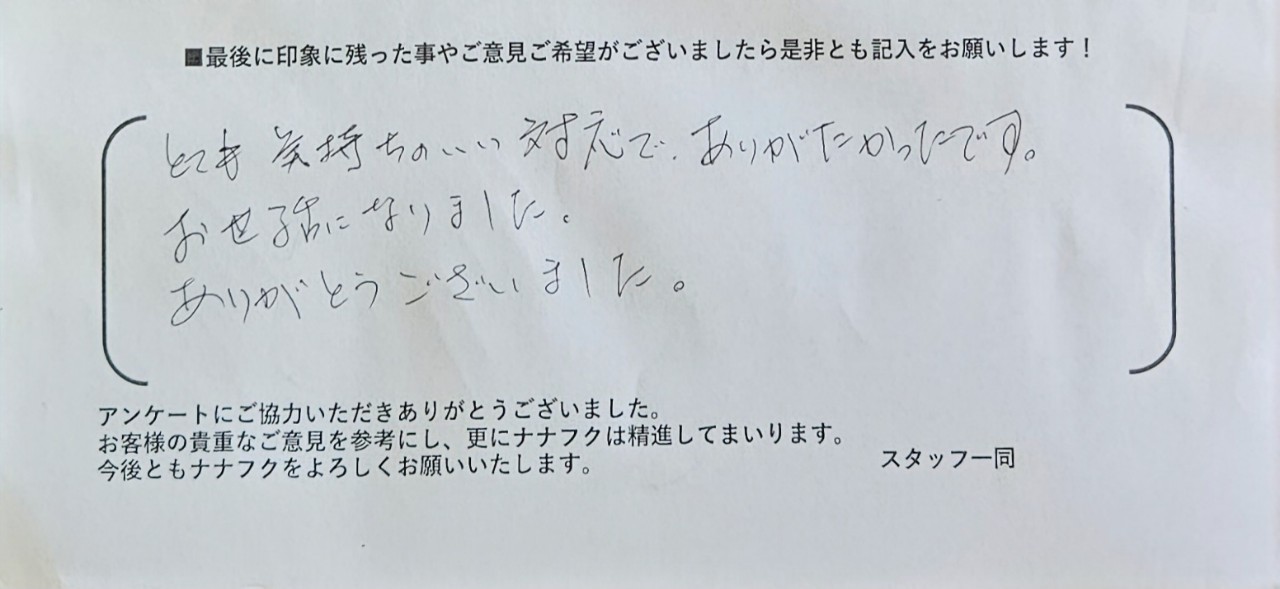 ■最後に印象に残った事やご意見ご希望がございましたら是非とも記入をお願いします！
とても気持ちのいい対応で、ありがたかったです。
お世話になりました。
ありがとうございました。
アンケートにご協力いただきありがとうございました。
お客様の貴重なご意見を参考にし、更にナナフクは精進してまいります。
今後ともナナフクをよろしくお願いいたします。
スタッフ一同